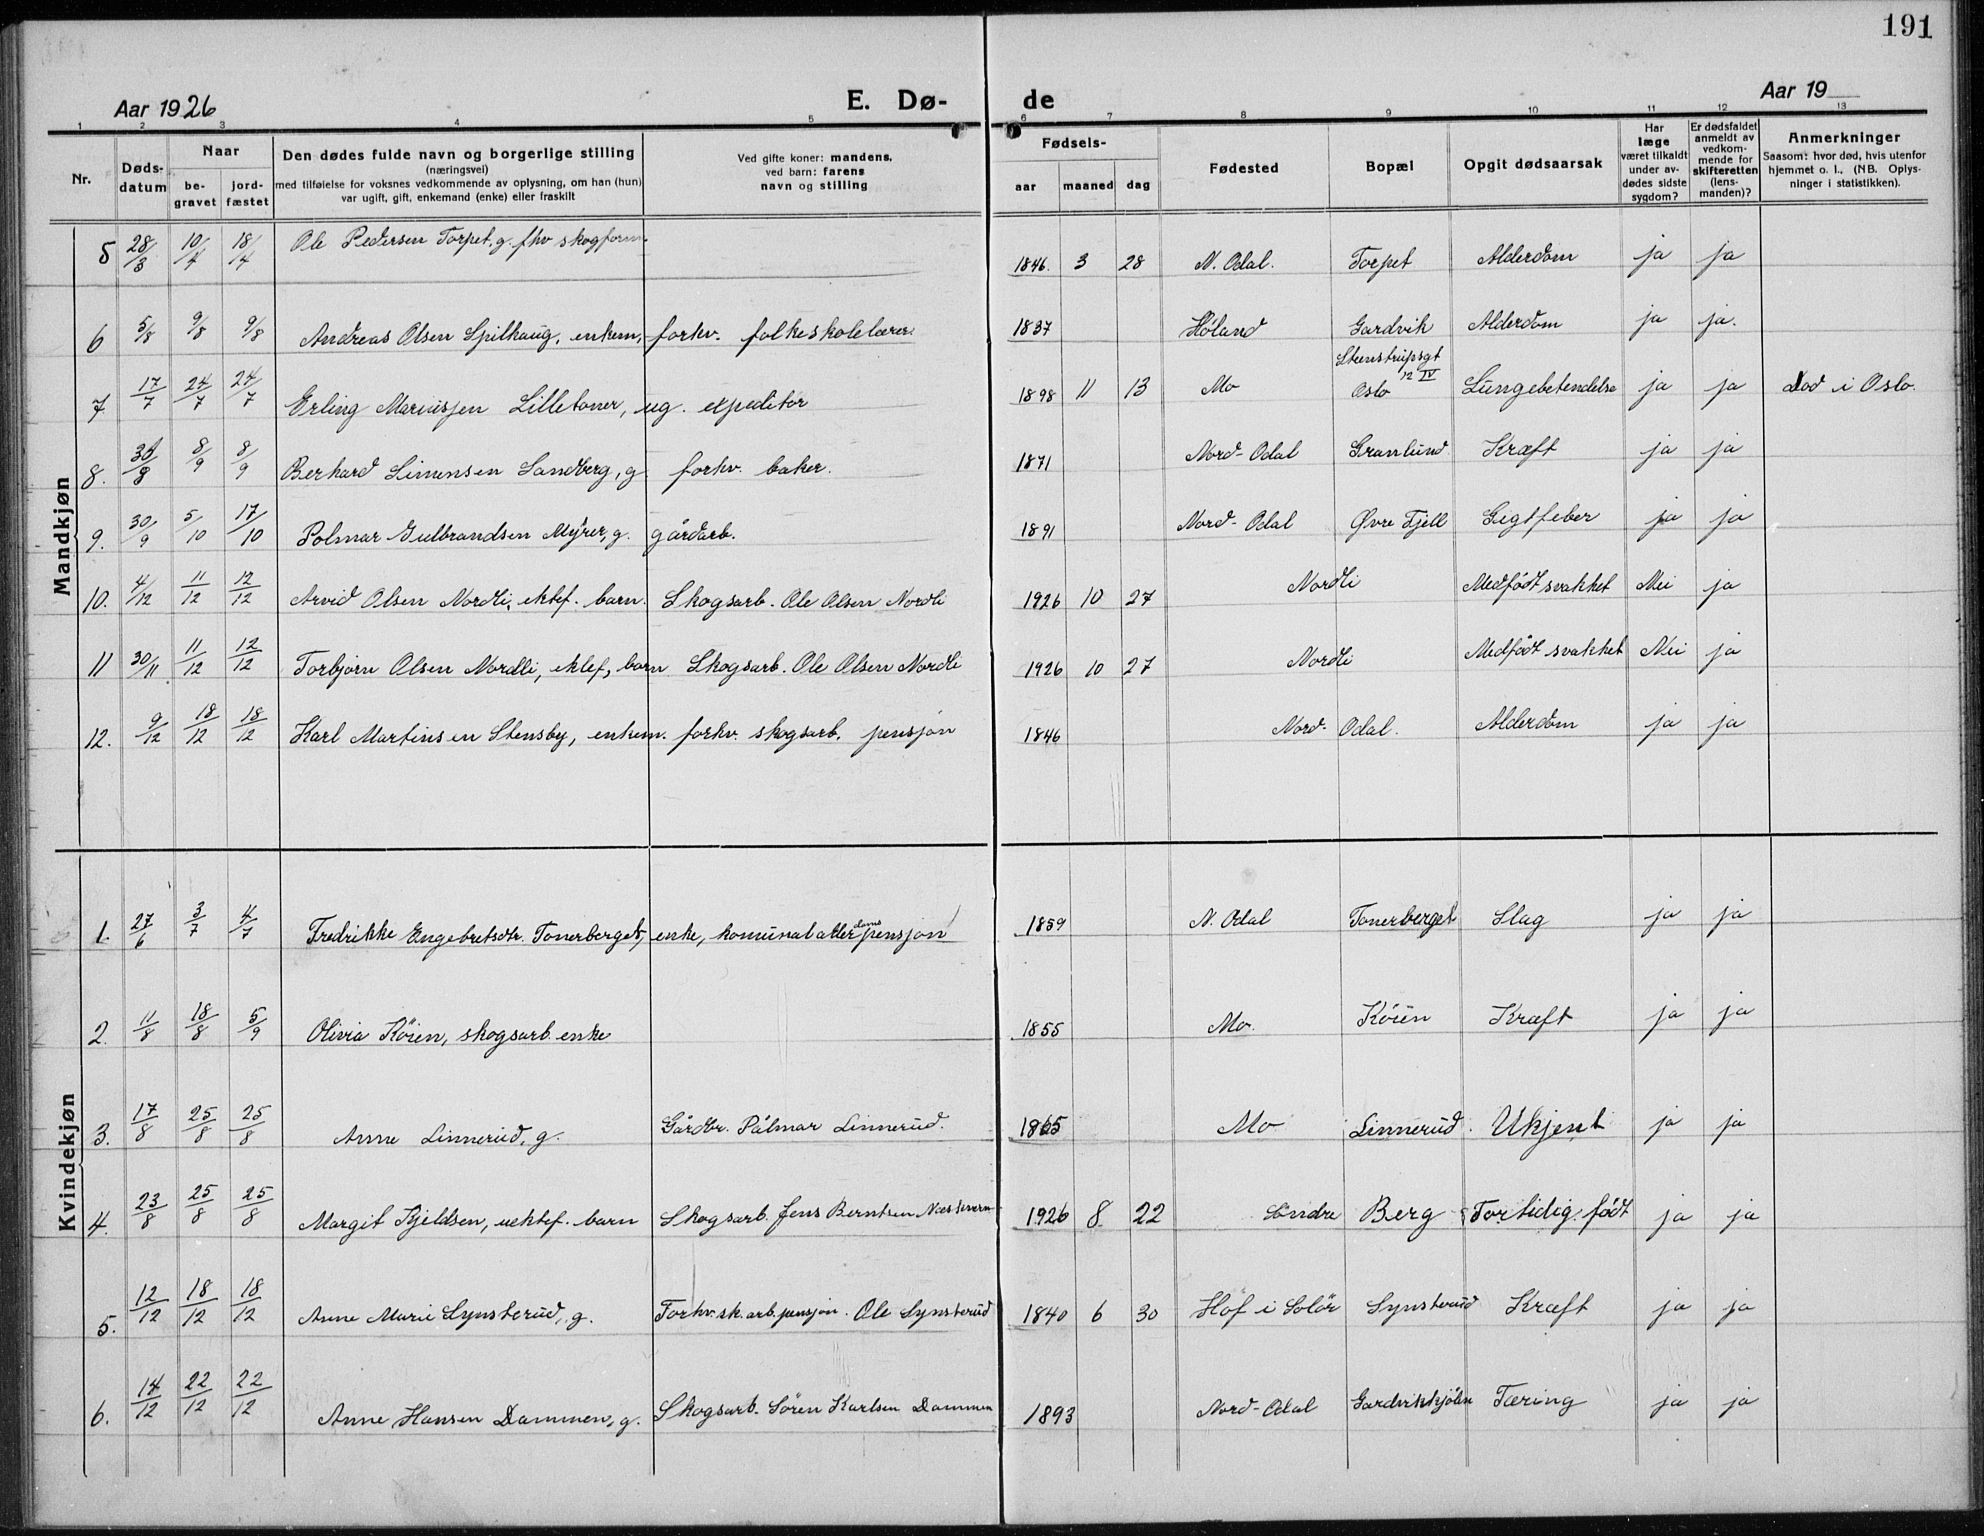 191
Aar 1926
E. Dø-
de
Aar 19
1 2 3 4 5 6 7 8 9 10 11 12 13
Nr.
Døds-
datum
Naar
be-
gravet
jord-
fæstet
Den dødes fulde navn og borgerlige stilling
(næringsvei)
med tilføielse for voksnes vedkommende av oplysning, om han (hun)
var ugift, gift, enkemand (enke) eller fraskilt
Ved gifte koner: mandens,
ved barn: farens
navn og stilling
Fødsels-
aar maaned dag
Fødested
Bopæl
Opgit dødsaarsak
Har
læge
været tilkaldt
under av-
dødes sidste
sygdom?
Er dødsfaldet
anmeldt av
vedkom-
mende for
skifteretten
(lens-
manden)?
Anmerkninger
Saasom: hvor død, hvis utenfor
hjemmet o. l., (NB. Oplys-
ninger i statistikken).
Mandkjøn
5 28/3 10/4 18/4 Ole Pedersen Torpet, g. fhv skogform. 1846. 3 28 N. Odal. Torpet Alderdom ja ja
6 5/8 9/8 9/8 Andreas Olsen Spilhaug, enkem, forhv. folkeskolelærer. 1837 Høland Gardvik Alderdom ja ja.
Stenstrupsgt
12 IV
7 17/7 24/7 24/7 Erling Mariusjen Lilletoner, ug. expeditør 1898 11 13 Mo Oslo Lungebetendelse ja ja Død i Oslo.
8. 30/8 8/9 8/9 Berhard Simensen Sandberg, g. forhv. baker. 1871 Nord-Odal Granlund Kræft ja ja
9. 30/9 5/10 17/10 Polmar Gulbrandsen Myrer, g. gårdarb. 1891 Nord-Odal Øvre Fjell Gigtfeber ja ja
10. 4/12 11/12 12/12 Arvid Olsen Nordli, ektef. barn. Skogsarb. Ole Olsen Nordli 1926 10 27 Nordli Medfødt svakket Nei ja
11 30/11 11/12 12/12 Torbjørn Olsen Nordli, ektef, barn Skogsarb. Ole Olsen Nordli 1926 10 27 Nordli Medfødt svakket Nei ja
12. 9/12 18/12 18/12 Karl Martinsen Stensby, enkem. forhv. skogsarb. pensjon 1846 Nord-Odal. Alderdom ja ja
Kvindekjøn
1. 27/6 3/7 4/7 Fredrikke Engebretsdtr. Tonerberget, enke, komunal alderdoms pensjon 1859 N. Odal Tonerberget Slag ja ja
2. 11/8 18/8 5/9 Olivia Köien, skogsarb. enke 1855 Mo. Köien Kræft ja ja
3. 17/8 25/8 25/8 Anne Linnerud, g. Gårdbr. Pålmar Linnerud. 1865 Mo Linnerud. Ukjent ja ja
4. 23/8 25/8 25/8 Margit Kjeldsen, uektef. barn Skogsarb. Jens Berntsen 1926 8 22 Söndre Berg Fortidig født ja ja
5. 12/12 18/12 18/12 Anne Marie Synsterud, g. Forhv. sk. arb. pensjon. Ole Synsterud 1840 6 30 Hof i Solör Synsterud Kræft ja ja
6. 14/12 22/12 22/12 Anne Hansen Dammen, g. Skogsarb. Sören Karlsen Dammen 1893 Nord-Odal Gardvikkjölen Tæring ja ja